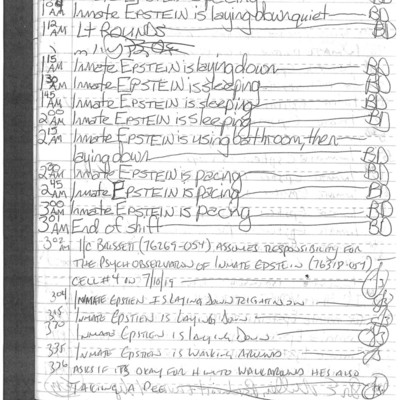 1 AM Inmate EPSTEIN is laying down quiet BD
1 12 AM Lt ROUNDS
1 15 AM Inmate EPSTEIN is laying down BD
1 30 AM Inmate EPSTEIN is sleeping BD
1 45 AM Inmate EPSTEIN is sleeping BD
2 00 AM Inmate EPSTEIN is sleeping BD
2 15 AM Inmate EPSTEIN is using bathroom, then
laying down BD
2 30 AM Inmate EPSTEIN is pacing BD
2 45 AM Inmate EPSTEIN is pacing BD
3 00 AM Inmate EPSTEIN is pacing BD
3 01 AM End of shift BD
302 I/C BRISSETT (76269-054) ASSUMES RESPONSIBILITY FOR
THE PSYCH OBSERVATION OF INMATE EPSTEIN (76318-054)
CELL #4 IN 7/10/19
304 INMATE EPSTIEN IS LAYING DOWN RIGHT NOW
INMATE EPSTIEN IS LAYING DOWN
INMATE EPSTIEN IS LAYING DOWN
335 INMATE EPSTIEN IS WALKING AROUND
336 ASKS IF ITS OKAY FOR HIM TO WALK AROUND HES ALSO
TAKING A PEE